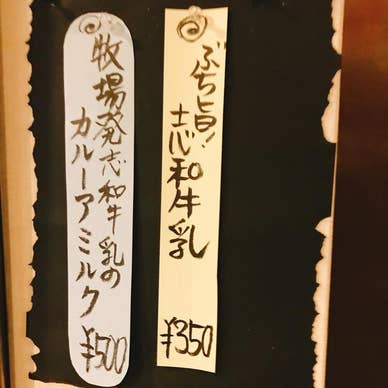 ぶち旨!
志和牛乳
¥350
牧場発志和牛乳の
カルーアミルク
¥500